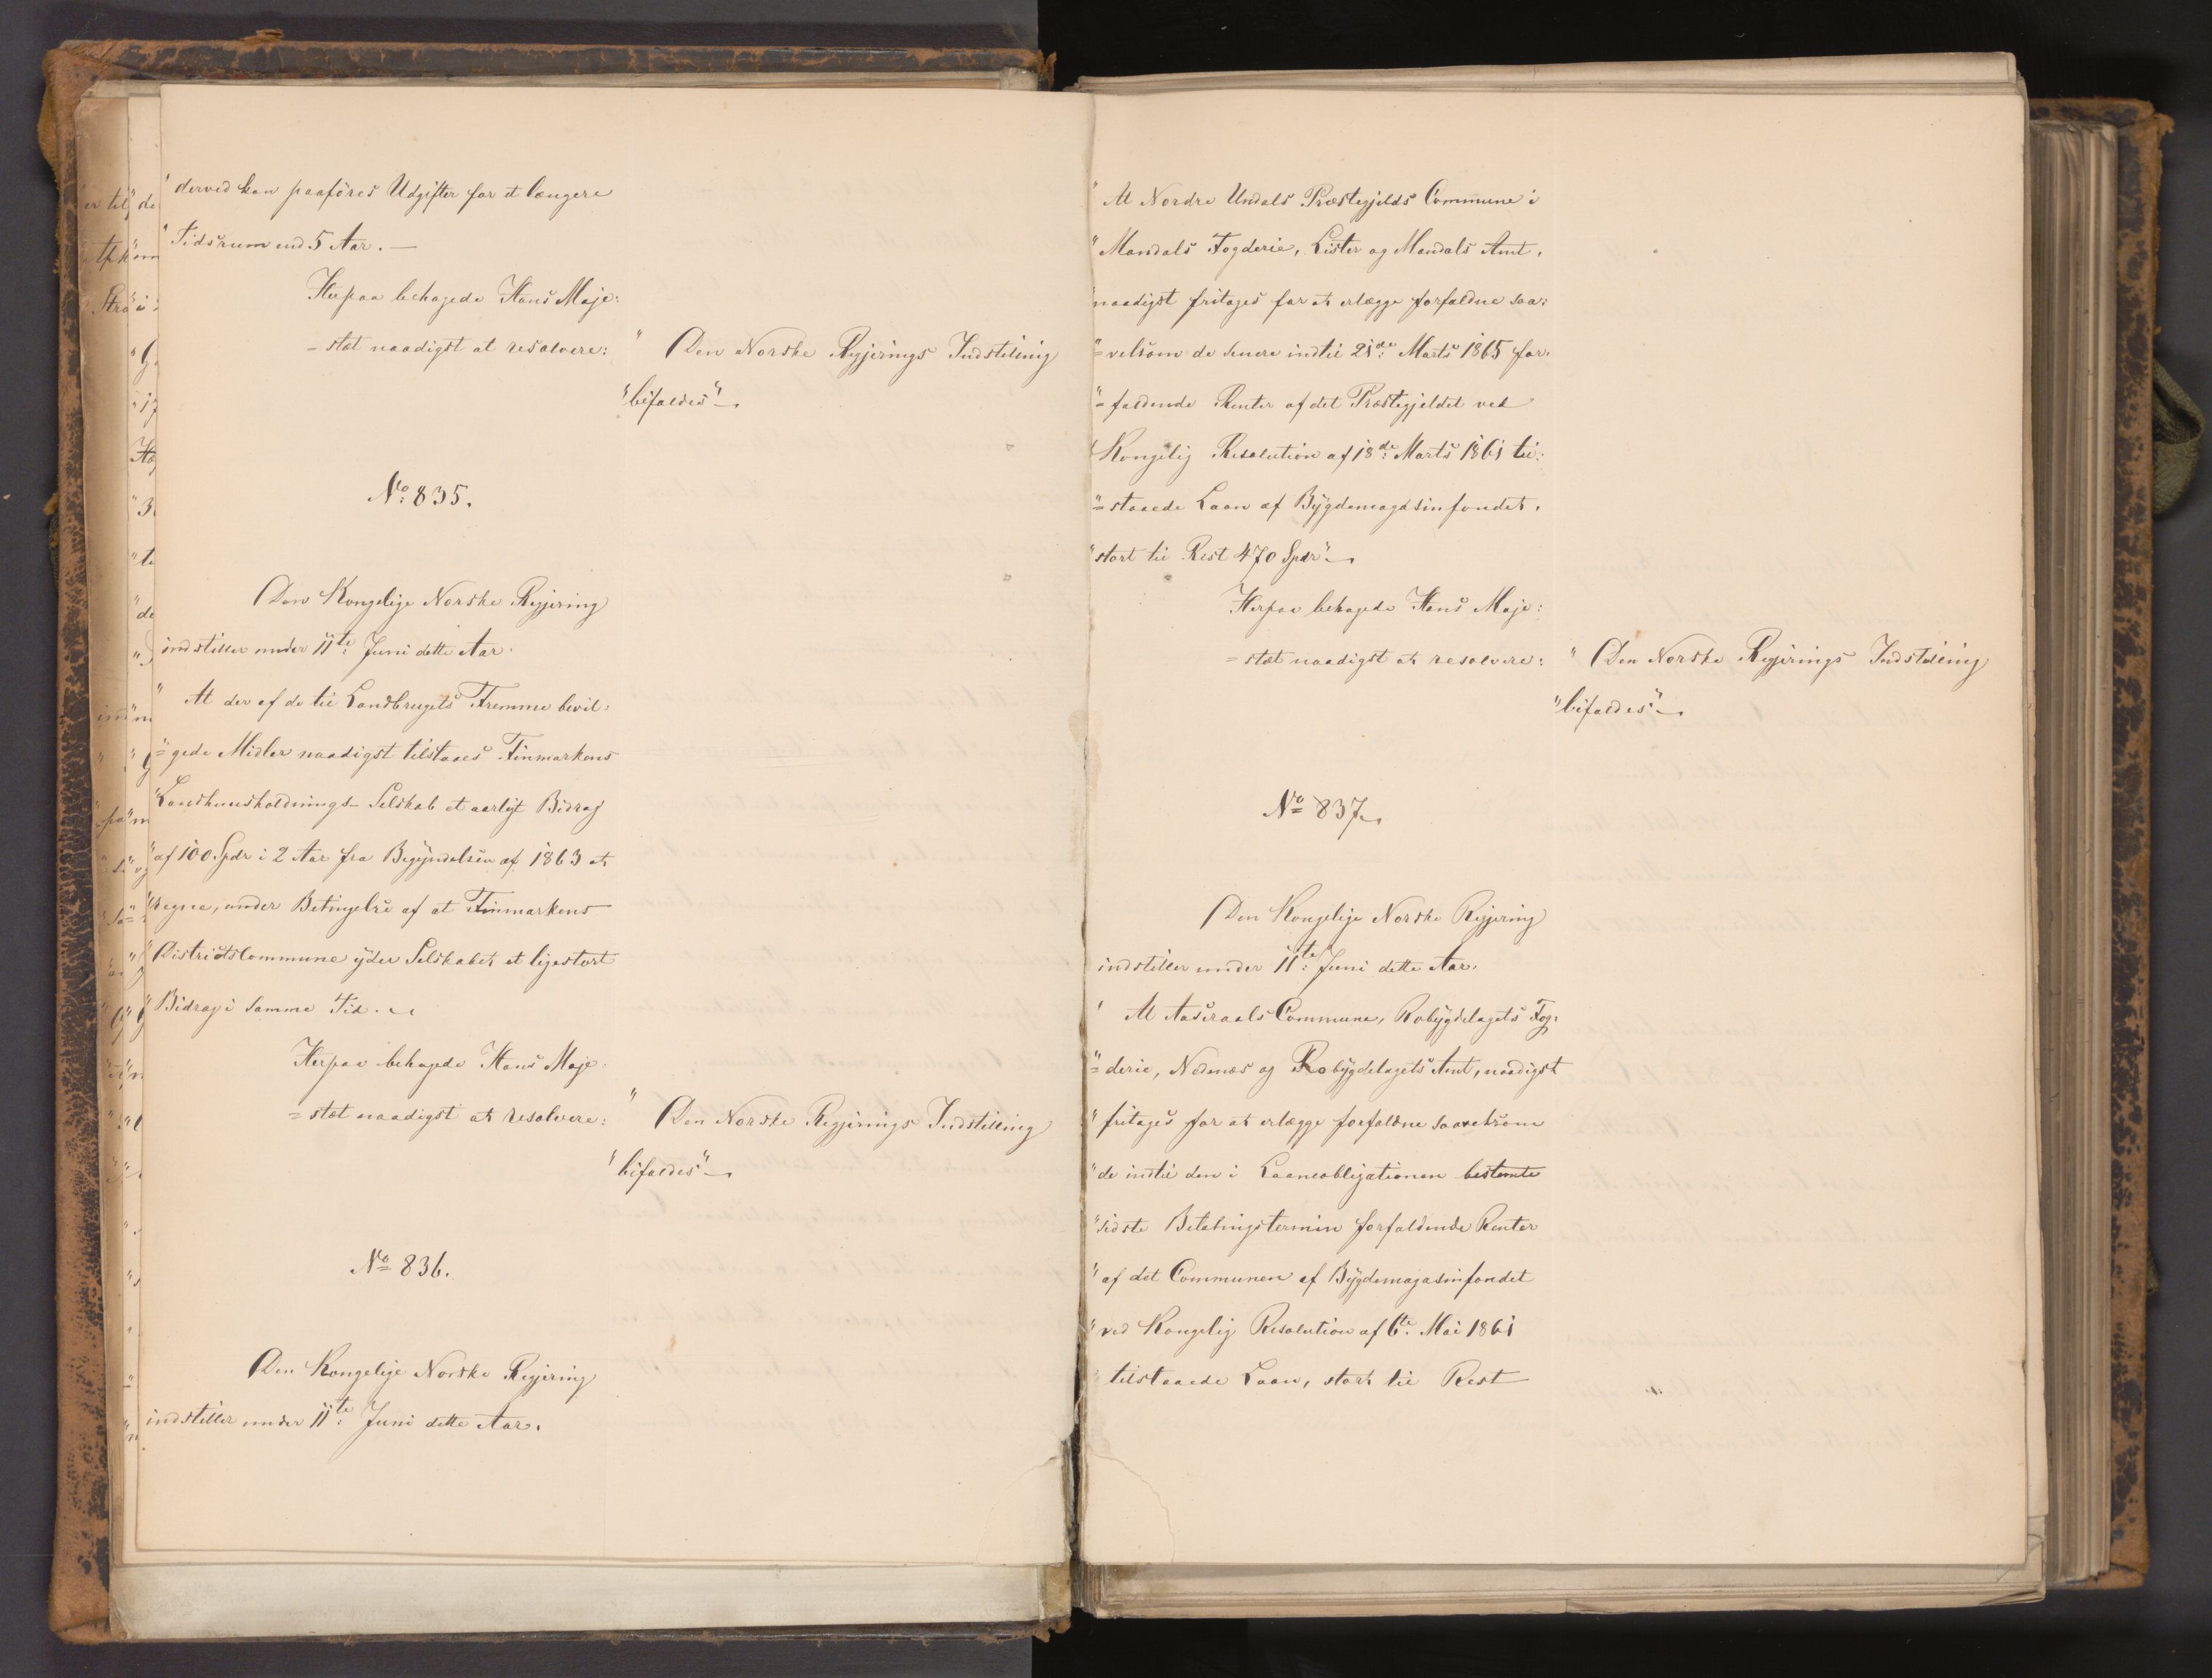 "derved kan paaføres Udgifter for et længere
"Tidsrum end 5 Aar. —
Herpaa behagede Hans Maje:
=stæt naadigst at resolvere:
"Den Norske Regjerings Indstilling
"bifaldes"
No: 835.
Den Kongelige Norske Regjering
indstiller under 11te: Juni dette Aar.
"At der af de til Landbrugets Fremme bevil:
"=gede Midler naadigst tilstaaes Finmarkens
"Landhuusholdnings-Selskab et aarligt Bidrag
"af 100 Spdr i 2 Aar fra Begyndelsen af 1863 at
"regne, under Betingelse af at Finmarkens
"DistrictsCommune yder Selskabet et ligestort
"Bidrag i samme Tid.
Herpaa behagede Hans Maje:
=stæt naadigst at resolvere:
"Den Norske Regjerings Indstilling
"bifaldes"
No 836.
Den Kongelige Norske Regjering
indstiller under 11te: Juni dette Aar.
"At Nordre Undals Præstegjelds Commune i
"Mandals Fogderie, Lister og Mandals Amt,
"naadigst fritages for at erlægge forfaldne saa:
"=velsom de senere indtil 21de: Marts 1865 for:
"=faldende Renter af det Præstegjeldet ved
"Kongelig Resolution af 18de: Marts 1861 til:
"=staaede Laan af Bygdemagasinfondet,
"stort til Rest 470 Spdr"
Herpaa behagede Hans Maje:
=stæt naadigst at resolvere:
"Den Norske Regjerings Indstilling
"bifaldes"
No 837
Den Kongelige Norske Regjering
indstiller under 11te: Juni dette Aar.
"At Aaseraals Commune, Robygdelagets Fog:
"=derie, Nedenæs og Robygdelagets Amt, naadigst
"fritages for at erlægge forfaldne saavelsom
"de indtil den i Laaneobligationen bestemte
"sidste Betalingstermin forfaldende Renter
"af det Communen af Bygdemagasinfondet
"ved Kongelig Resolution af 6te: Mai 1861
"tilstaaede Laan, stort til Rest